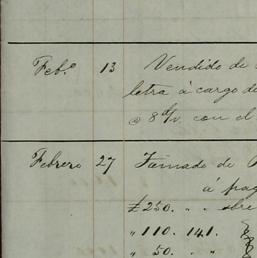 Feb.º 13 Vendido de
letra à cargo de
@ 8 d/v. con el
Febrero 27 Tomado de
á pag
£ 250. " "
" 110. 141.
" 50. "